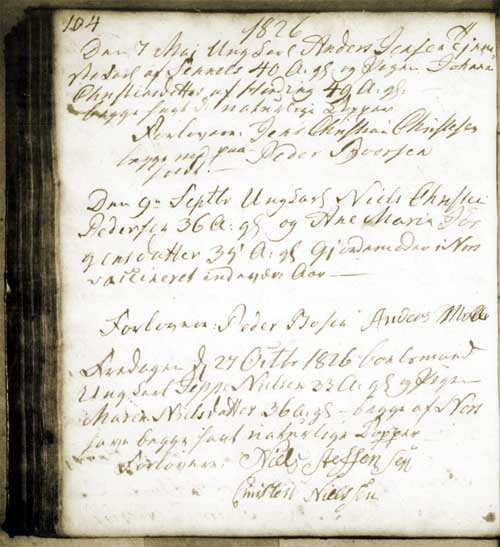 104
1826
Den 7 Maj Ungkarl Anders Jensen
af Sennels 40 A: gl og Pigen Johanne
Christensdatter af 40 A: gl:
begge havt de naturlige Kopper
Forlovere: Jens Christian Christensen
begge med paa Peder Iversen
Den 9n Septbr Ungkarl Niels Christen
Pedersen 36 A: gl og Ane Marie Jør
gensdatter 35 A: gl Gjordemoder i Nors
vaccineret Aar
Forlovere: Peder Anders Møller
Fredagen d 27 Octbr 1826
Ungkarl Jeppe Nielsen 33 A: gl og Pigen
Maren Nielsdatter 36 A: gl - begge af Nors
have begge havt naturlige Kopper
Forlovere: Niels Steffensen
Christen Nielsen